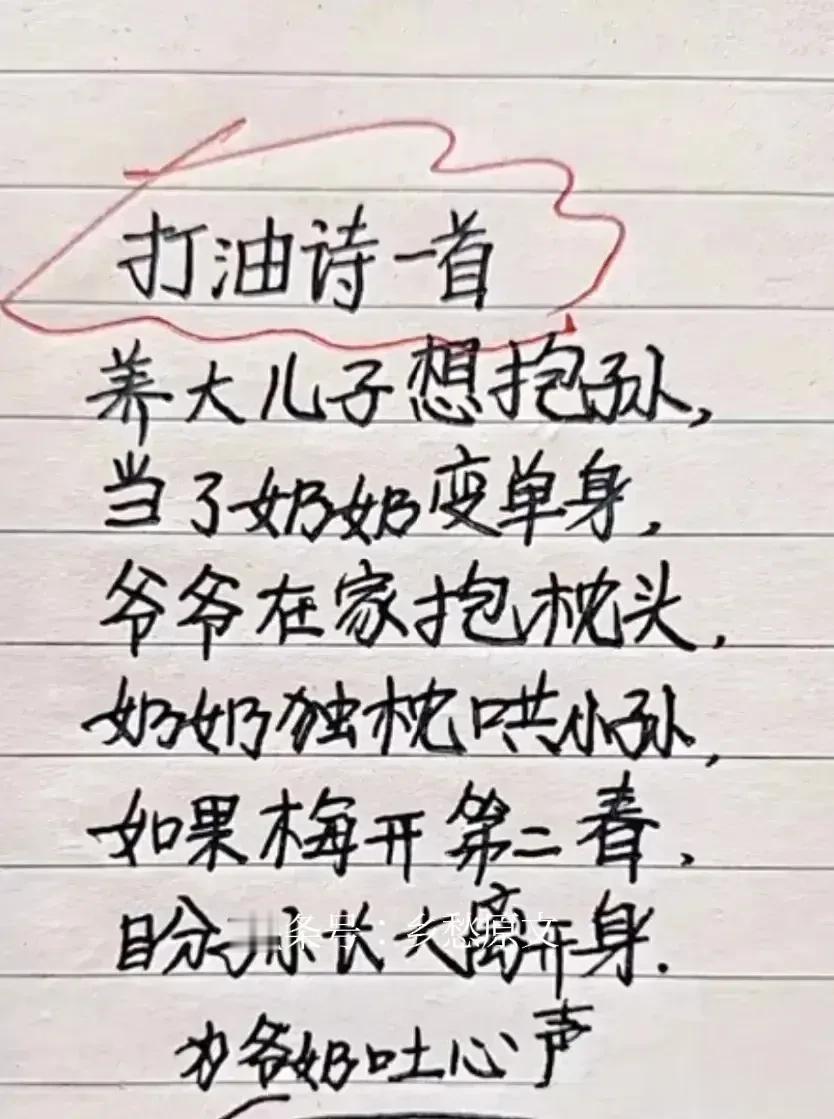 打油诗一首
养大儿子想抱孙,
当了奶奶变单身,
爷爷在家抱枕头,
奶奶独枕哄小孙,
如果梅开第二春,
盼孙长大离开身.
条号:乡愁原文
为爷奶吐心声